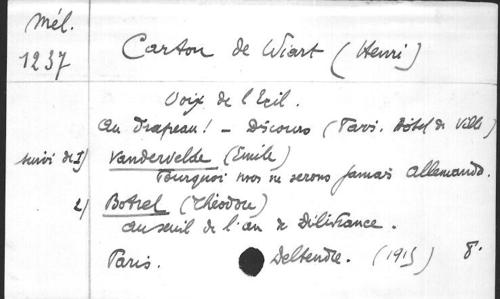 Mél.
1237
Carton de Wiart (Henri)
Voix de l'Exil.
Au Drapeau! - Discours (Paris. Hôtel de Ville)
suivi de 1) Vandervelde (Emile)
Pourquoi nous ne serons jamais Allemands.
2) Botrel (Théodore)
Au seuil de l'an de Délivrance.
Paris. Delandre. (1915) 8°.